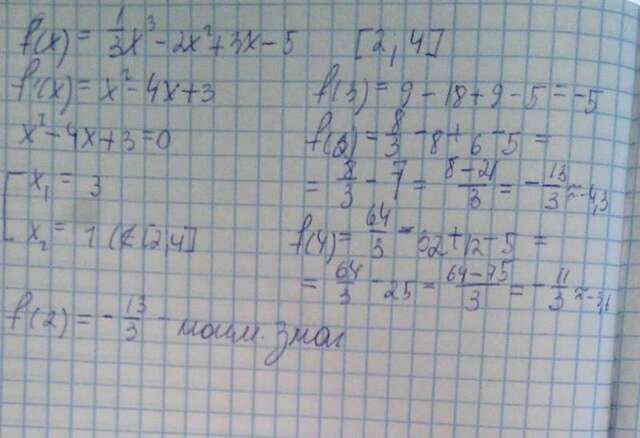 f(x) = 1/3 x³ - 2x² + 3x - 5 [2; 4]
f'(x) = x² - 4x + 3
x² - 4x + 3 = 0
[ x₁ = 3
x₂ = 1 (∉ [2; 4]
f(3) = 9 - 18 + 9 - 5 = -5
f(2) = 8/3 - 8 + 6 - 5 =
= 8/3 - 7 = (8 - 21)/3 = - 13/3 ≈ -4,3
f(4) = 64/3 - 32 + 12 - 5 =
= 64/3 - 25 = (64 - 75)/3 = - 11/3 ≈ -3,6
f(2) = - 13/3 - наим. знач